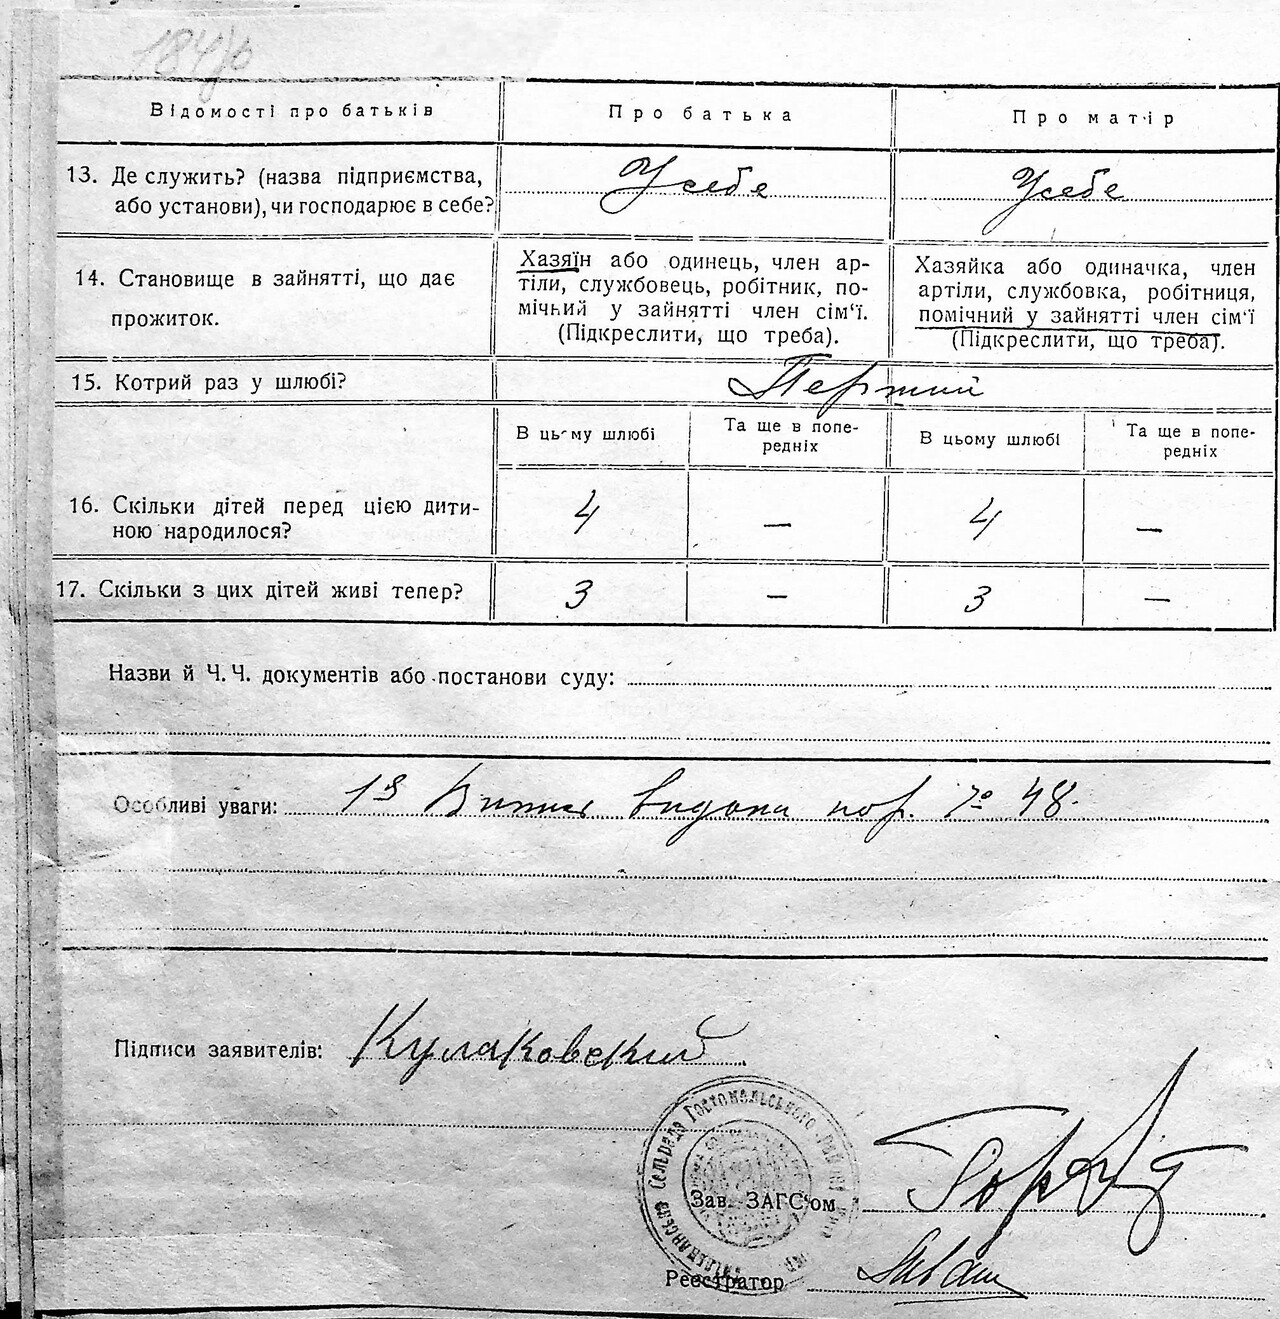 184/б
Відомості про батьків
Про батька
Про матір
13. Де служить? (назва підприємства,
або установи), чи господарює в себе?
У себе
У себе
14. Становище в зайнятті, що дає
прожиток.
Хазяїн або одинець, член ар-
тіли, службовець, робітник, по-
мічний у зайнятті член сім‘ї.
(Підкреслити, що треба).
Хазяйка або одиначка, член
артіли, службовка, робітниця,
помічний у зайнятті член сім‘ї
(Підкреслити, що треба).
15. Котрий раз у шлюбі?
Перший
В цьому шлюбі
Та ще в попе-
редніх
В цьому шлюбі
Та ще в попе-
редніх
16. Скільки дітей перед цією дити-
ною народилося?
4 — 4 —
17. Скільки з цих дітей живі тепер?
3 — 3 —
Назви й Ч. Ч. документів або постанови суду:
Особливі уваги: Випись видана пор. № 48.
Підписи заявителів: Кулаковский
Сельрада Гостомельського району
Зав. ЗАГС‘ом
Реєстратор